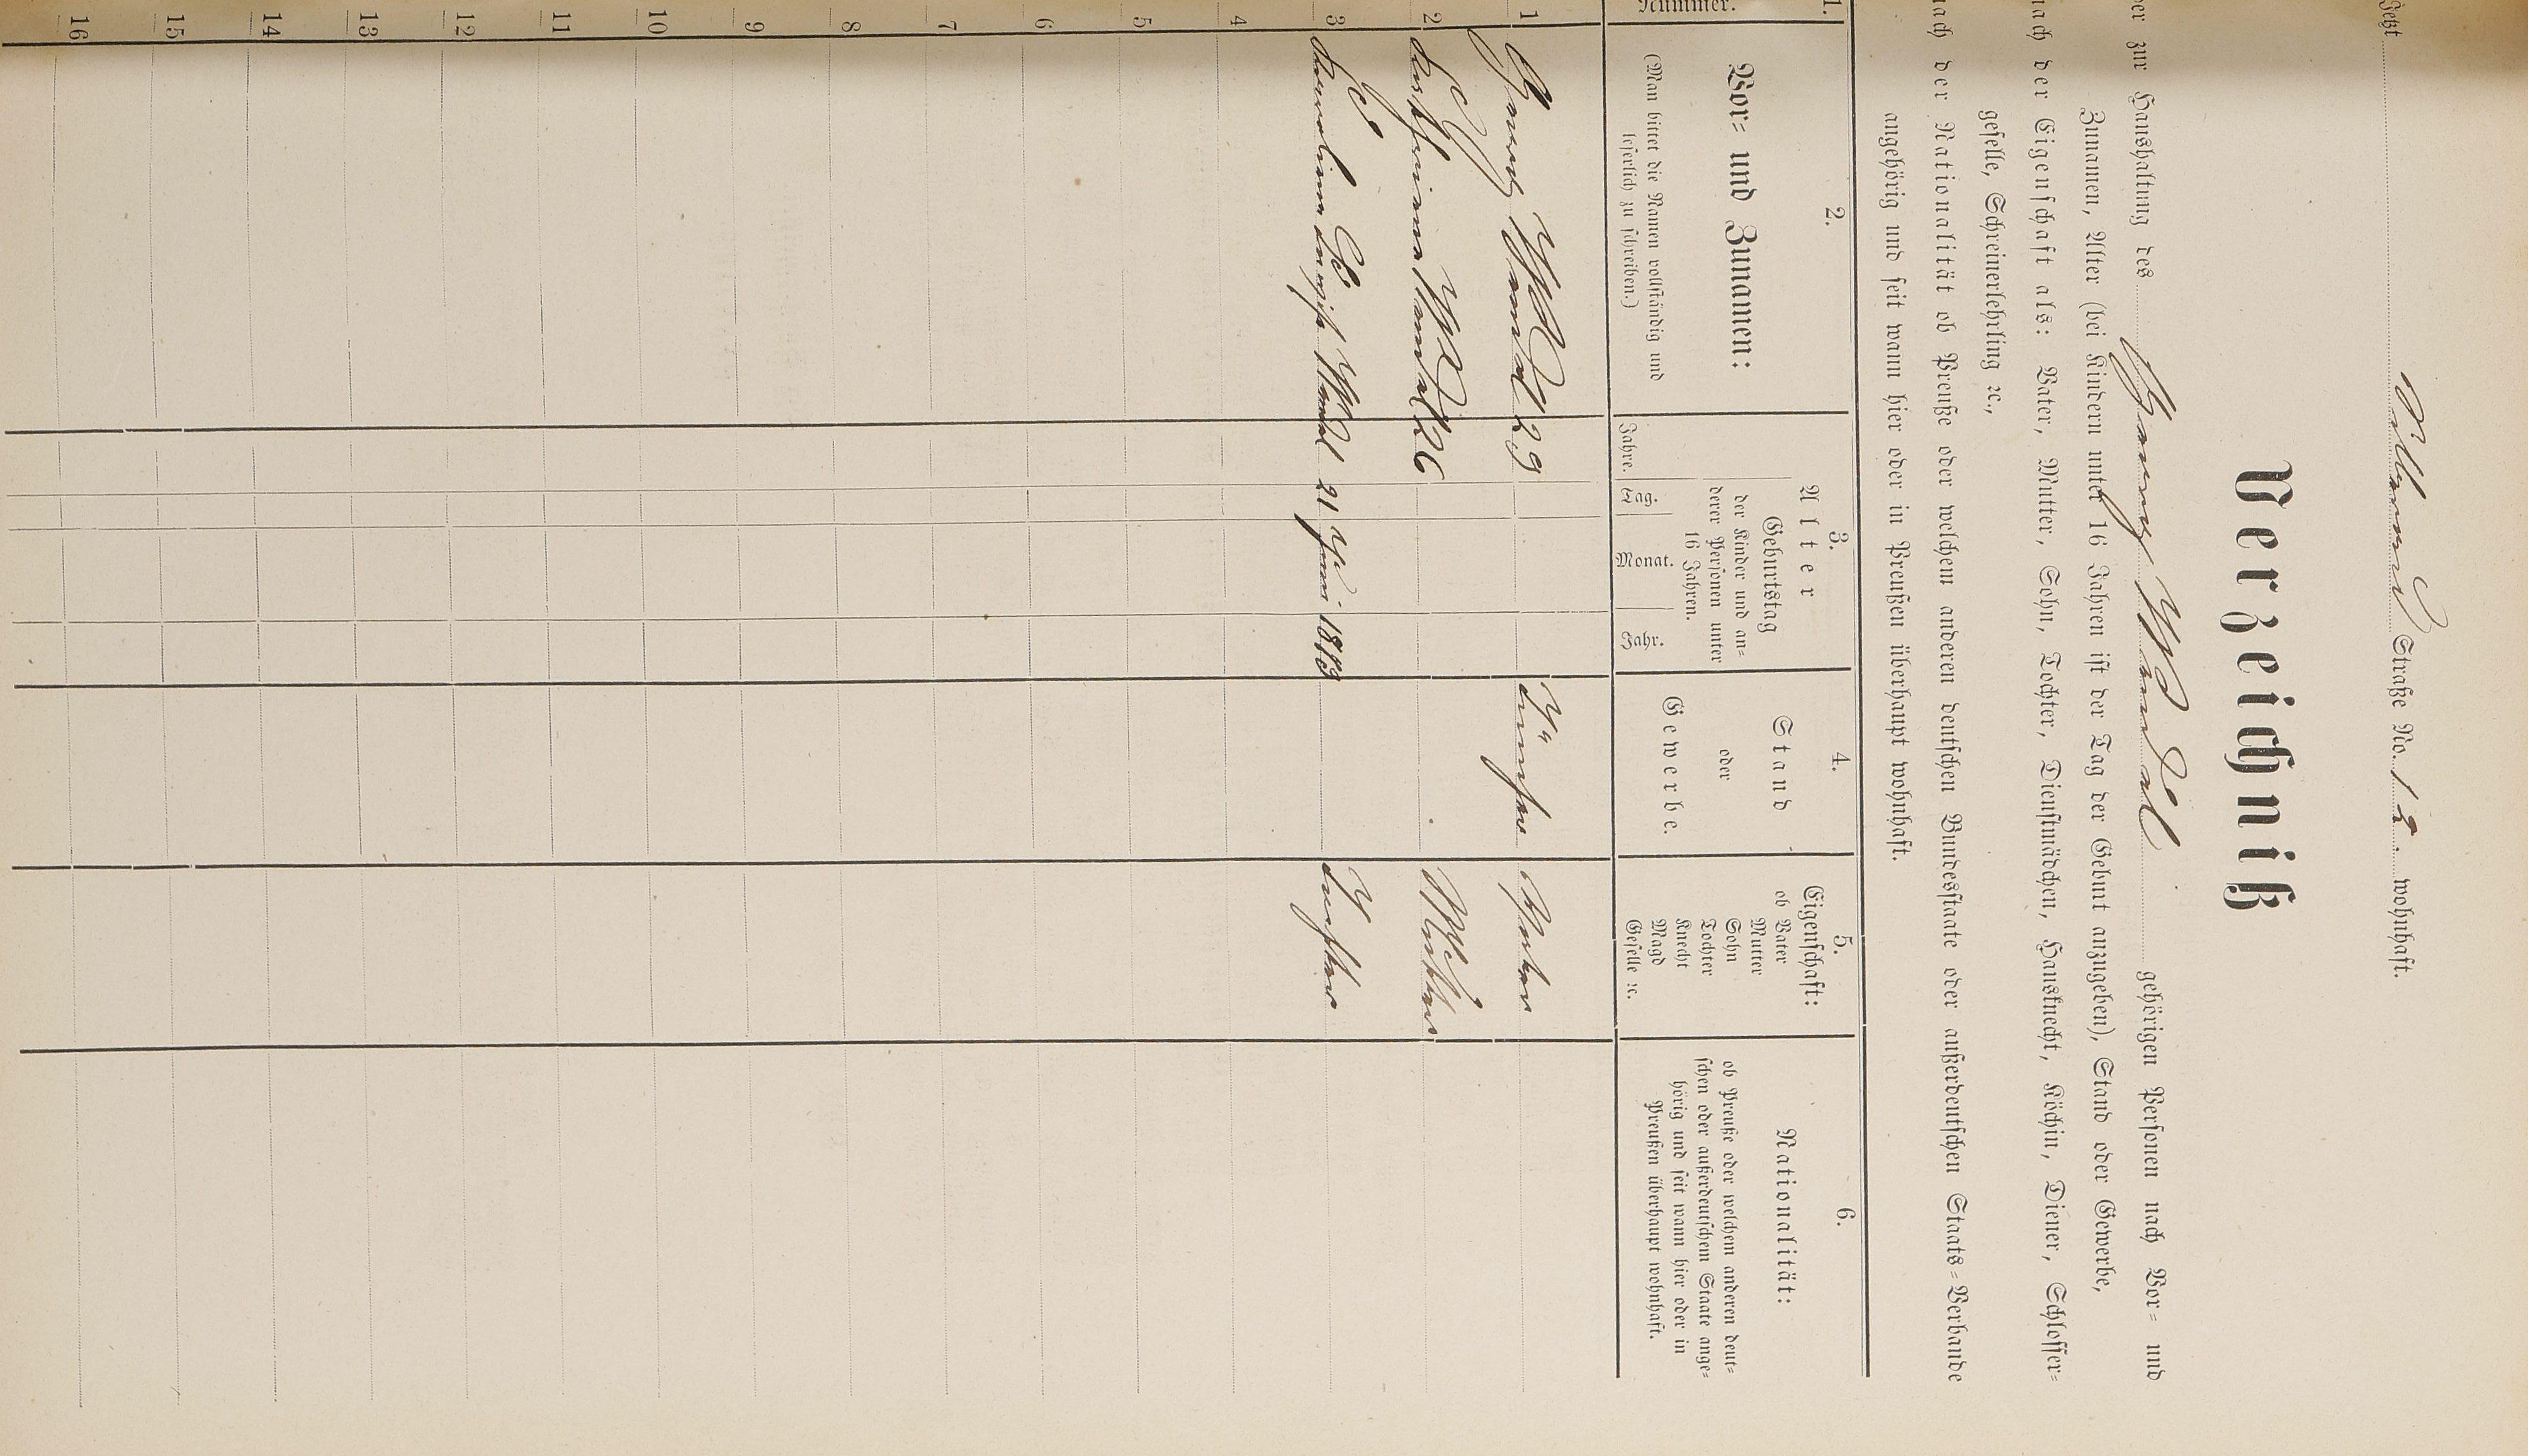 Jetzt Straße No. 12. wohnhaft.
Verzeichniß
der zur Haushaltung des Georg Wendel gehörigen Personen nach Vor= und
Zunamen, Alter (bei Kindern unter 16 Jahren ist der Tag der Geburt anzugeben), Stand oder Gewerbe,
nach der Eigenschaft als: Vater, Mutter, Sohn, Tochter, Dienstmädchen, Hausknecht, Köchin, Diener, Schlosser=
geselle, Schreinerlehrling ꝛc.,
nach der Nationalität ob Preuße oder welchem anderen deutschen Bundesstaate oder außerdeutschen Staats=Verbande
angehörig und seit wann hier oder in Preußen überhaupt wohnhaft.
1.
Nummer.
2.
Vor= und Zunamen:
(Man bittet die Namen vollständig und
leserlich zu schreiben.)
3.
Alter
Geburtstag
der Kinder und an=
derer Personen unter
16 Jahren.
Jahre.
Tag.
Monat.
Jahr.
4.
Stand
oder
Gewerbe.
5.
Eigenschaft:
ob Vater
Mutter
Sohn
Tochter
Knecht
Magd
Geselle ꝛc.
6.
Nationalität:
ob Preuße oder welchem anderen deut=
schen oder außerdeutschem Staate ange=
hörig und seit wann hier oder in
Preußen überhaupt wohnhaft.
1 Georg Wendel 29 Vater
2 Wendel 26 Mutter
3 Wendel 21 Juni Tochter
4
5
6
7
8
9
10
11
12
13
14
15
16